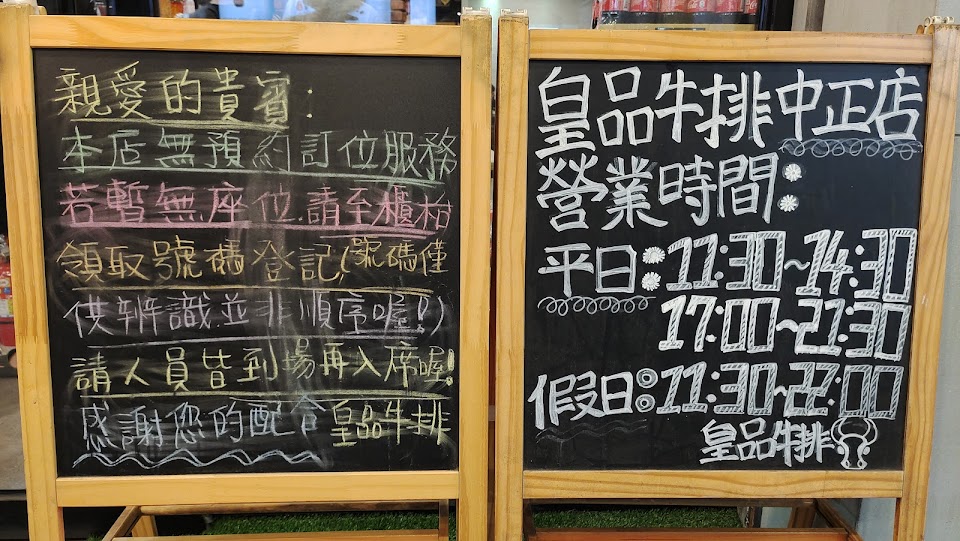 親愛的貴賓:
本店無預約訂位服務
若暫無座位.請至櫃枱
領取號碼登記.(號碼僅
供辨識.並非順序喔!)
請人員皆到場再入席喔!
感謝您的配合 皇品牛排
皇品牛排中正店
營業時間:
平日:11:30~14:30
17:00~21:30
假日:11:30~22:00
皇品牛排